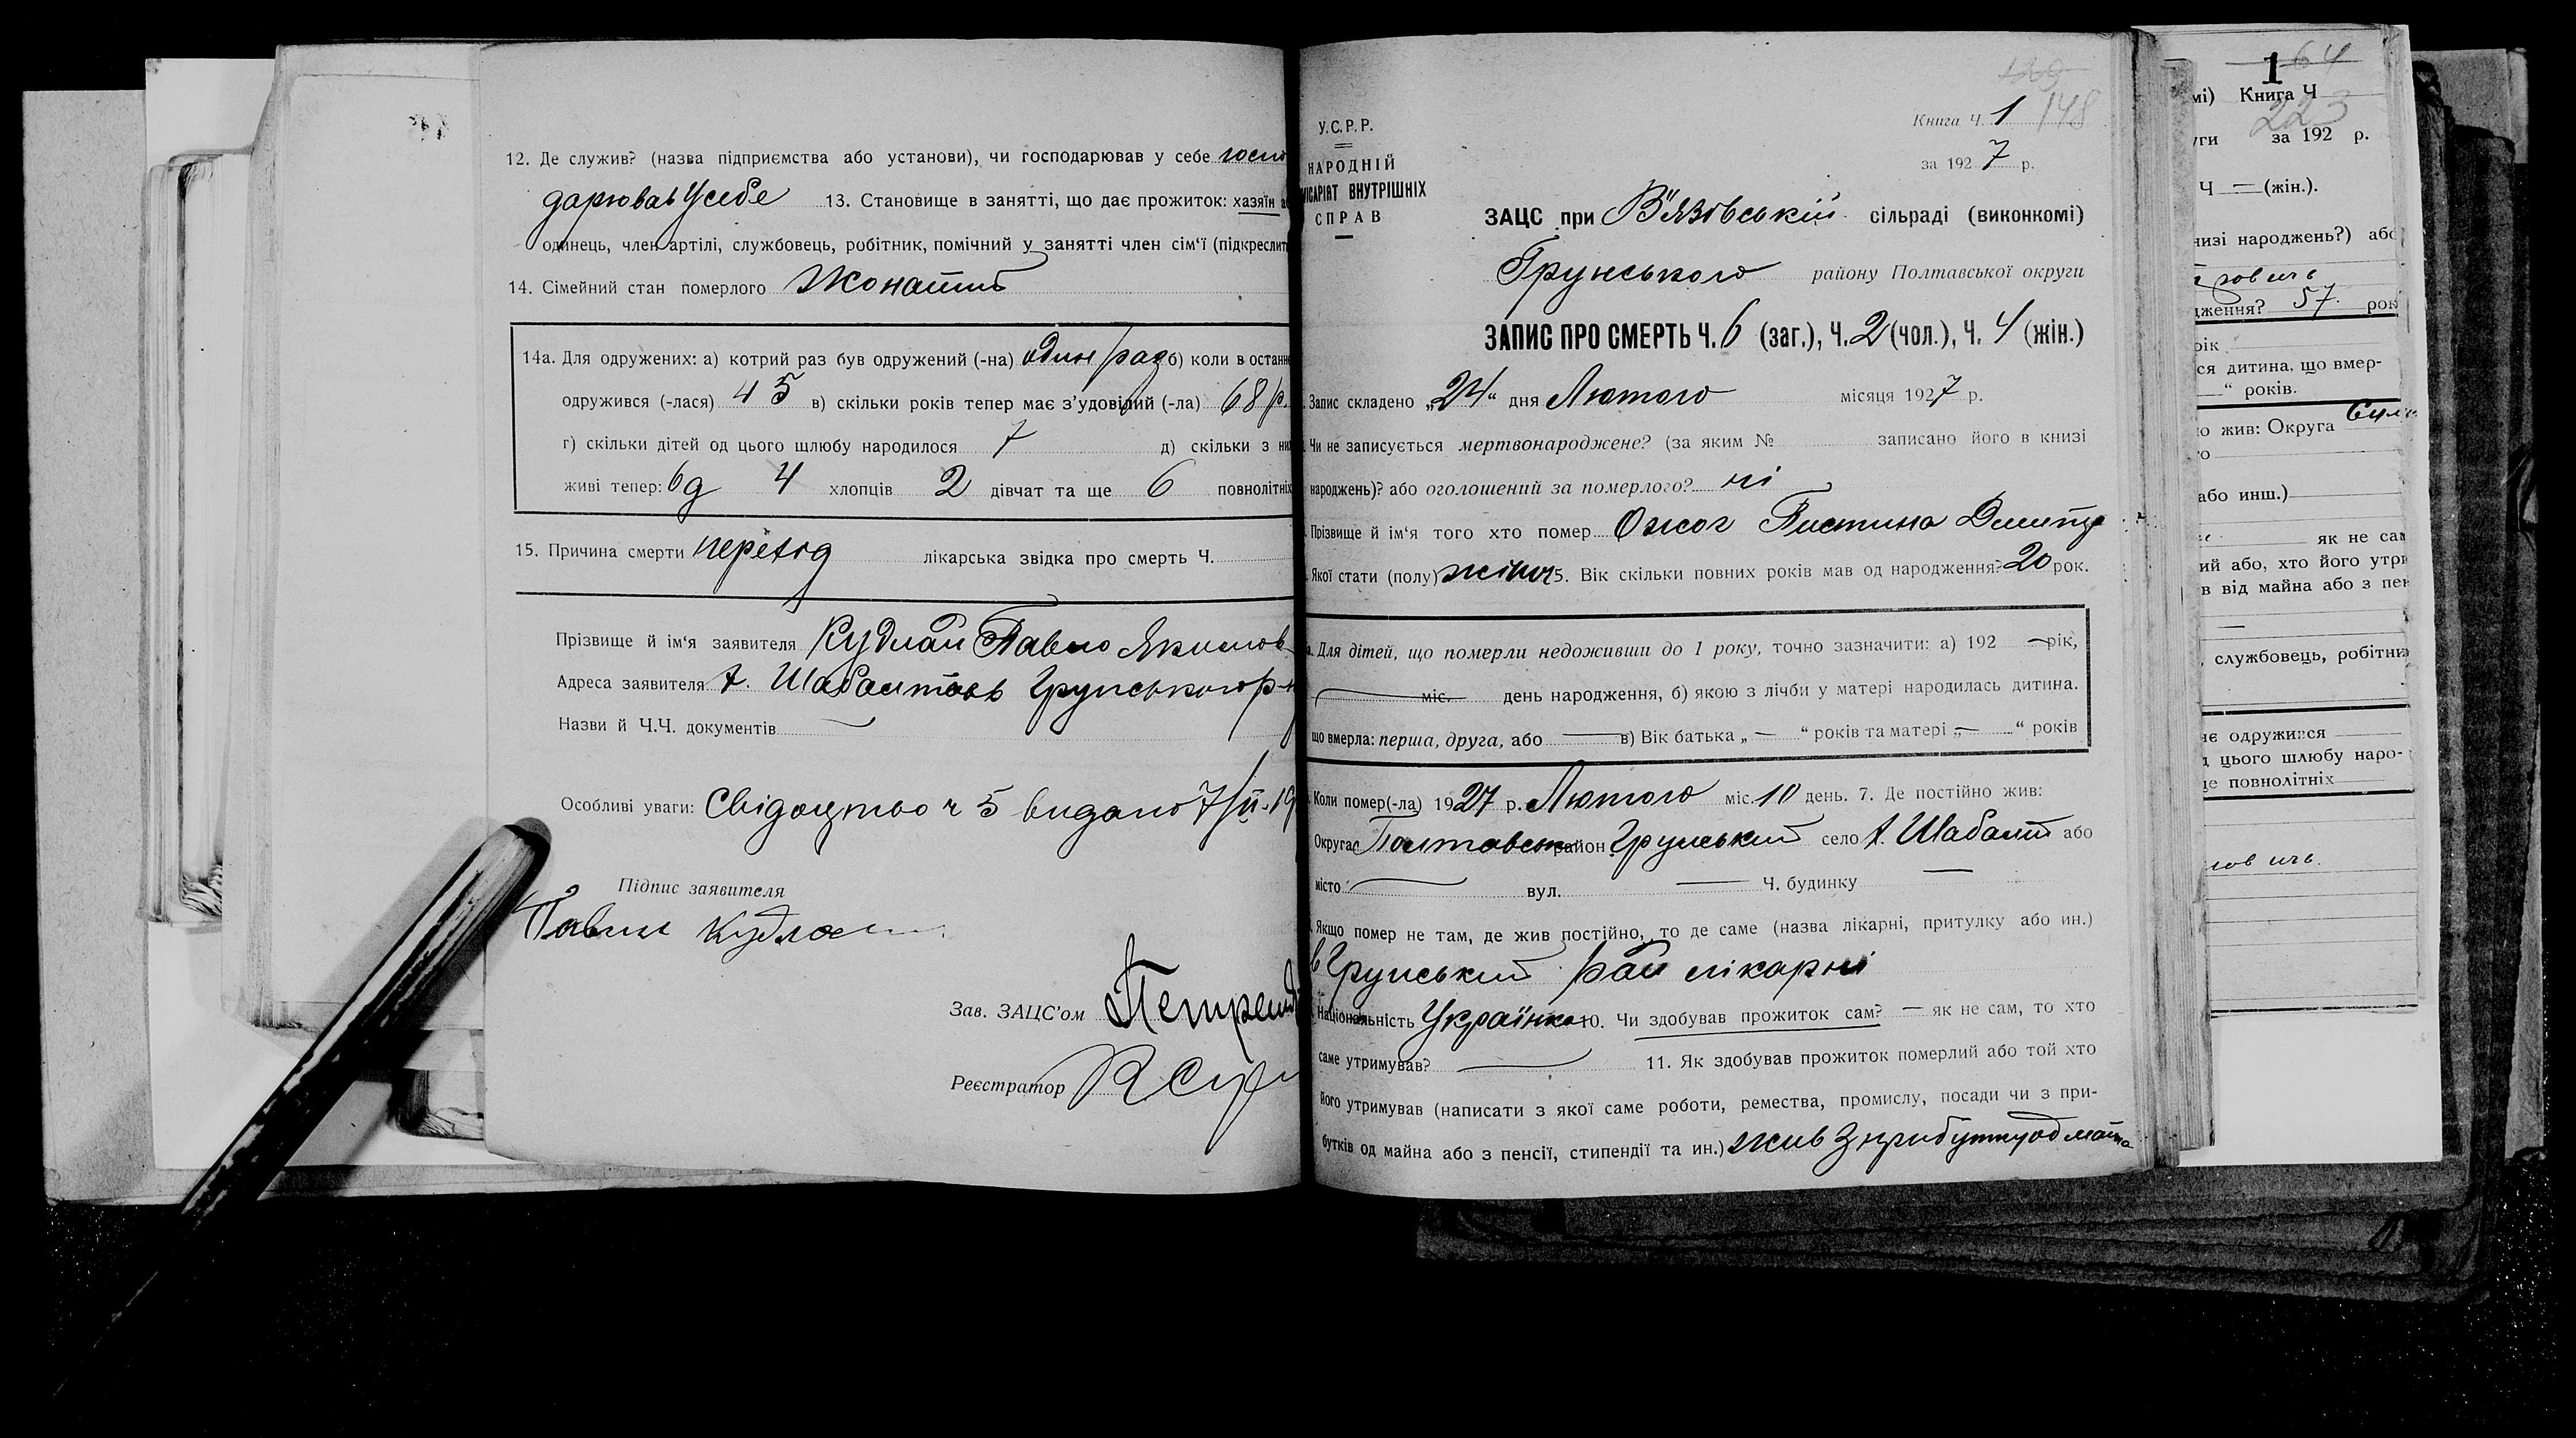 12. Де служив? (назва підприємства або установи), чи господарював у себе госпо
дарював у себе 13. Становище в занятті, що дає прожиток: хазяїн
одинець, член артілі, службовець, робітник, помічний у занятті член сім'ї (підкреслит
14. Сімейний стан померлого Жонатий
14а. Для одружених: а) котрий раз був одружений (-на) один раз б) коли в останн
одружився (-лася) 45 в) скільки років тепер має з'удовілий (-ла) 68 р.
г) скільки дітей од цього шлюбу народилося 7 д) скільки з ни
живі тепер: 6 д 4 хлопців 2 дівчат та ще 6 повнолітніх
15. Причина смерти лікарська звідка про смерть Ч.
Прізвище й ім'я заявителя Кудлай Павло Якимов
Адреса заявителя х. Грунського р-
Назви й Ч.Ч. документів —
Особливі уваги: Свідоцтво ч 5 видано 7/II-19
Підпис заявителя
Павло Кудлай
Зав. ЗАЦС'ом
Реєстратор
У.С.Р.Р.
НАРОДНІЙ
МІСАРІЯТ ВНУТРІШНІХ
СПРАВ
129
Книга Ч. 1 148
за 1927 р.
ЗАЦС при В'язівській сільраді (виконкомі)
Грунського району Полтавської округи
ЗАПИС ПРО СМЕРТЬ Ч. 6 (заг.), Ч. 2 (чол.), Ч. 4 (жін.)
Запис складено „24“ дня Лютого місяця 1927 р.
Чи не записується мертвонароджене? (за яким № записано його в книзі
народжень)? або оголошений за померлого? ні
Прізвище й ім'я того хто помер Ожог Пистина Дмитр
Якої стати (полу) жіноч 5. Вік скільки повних років мав од народження? 20 рок.
Для дітей, що померли недоживши до 1 року, точно зазначити: а) 192 — рік,
— міс. день народження, б) якою з лічби у матері народилась дитина.
що вмерла: перша, друга, або — в) Вік батька „ — “ років та матері „ — “ років
Коли помер(-ла) 1927 р. Лютого міс. 10 день. 7. Де постійно жив:
Округа Полтавськ район Грунський село х. Шабалт або
місто — вул. — Ч. будинку —
Якщо помер не там, де жив постійно, то де саме (назва лікарні, притулку або ин.)
в Грунський рай лікарні
Національність Українка 10. Чи здобував прожиток сам? — як не сам, то хто
саме утримував? — 11. Як здобував прожиток померлий або той хто
його утримував (написати з якої саме роботи, ремества, промислу, посади чи з при-
бутків од майна або з пенсії, стипендії та ин.) жив з прибутку од майна
1 64
мі) Книга Ч
223
уги за 192 р.
Ч — (жін.).
низі народжень?) або
дження? 57 рок
рік
ся дитина, що вмер-
— “ років.
о жив: Округа
о
або инш.)
як не сам
ий або, хто його утри
в від майна або з пен
—
, службовець, робітни
нє одружився
д цього шлюбу наро-
ще повнолітніх